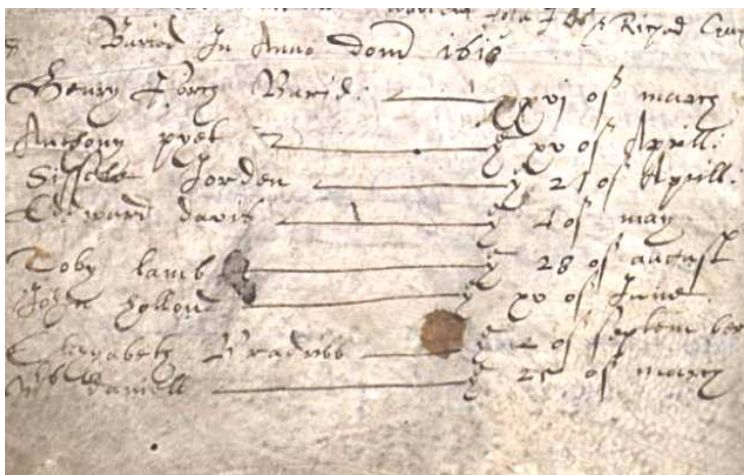 Richard
Buried In Anno Dom 1618
Henry Buried: xxvi of march
Anthony pyet y xv of Aprill:
Sissele Jorden y 21 of Aprill:
Edward davis y 4 of may
Toby lamb y 28 of august
John hollond y xv of June
Elizabeth y 2 of September
daniell y 25 of march